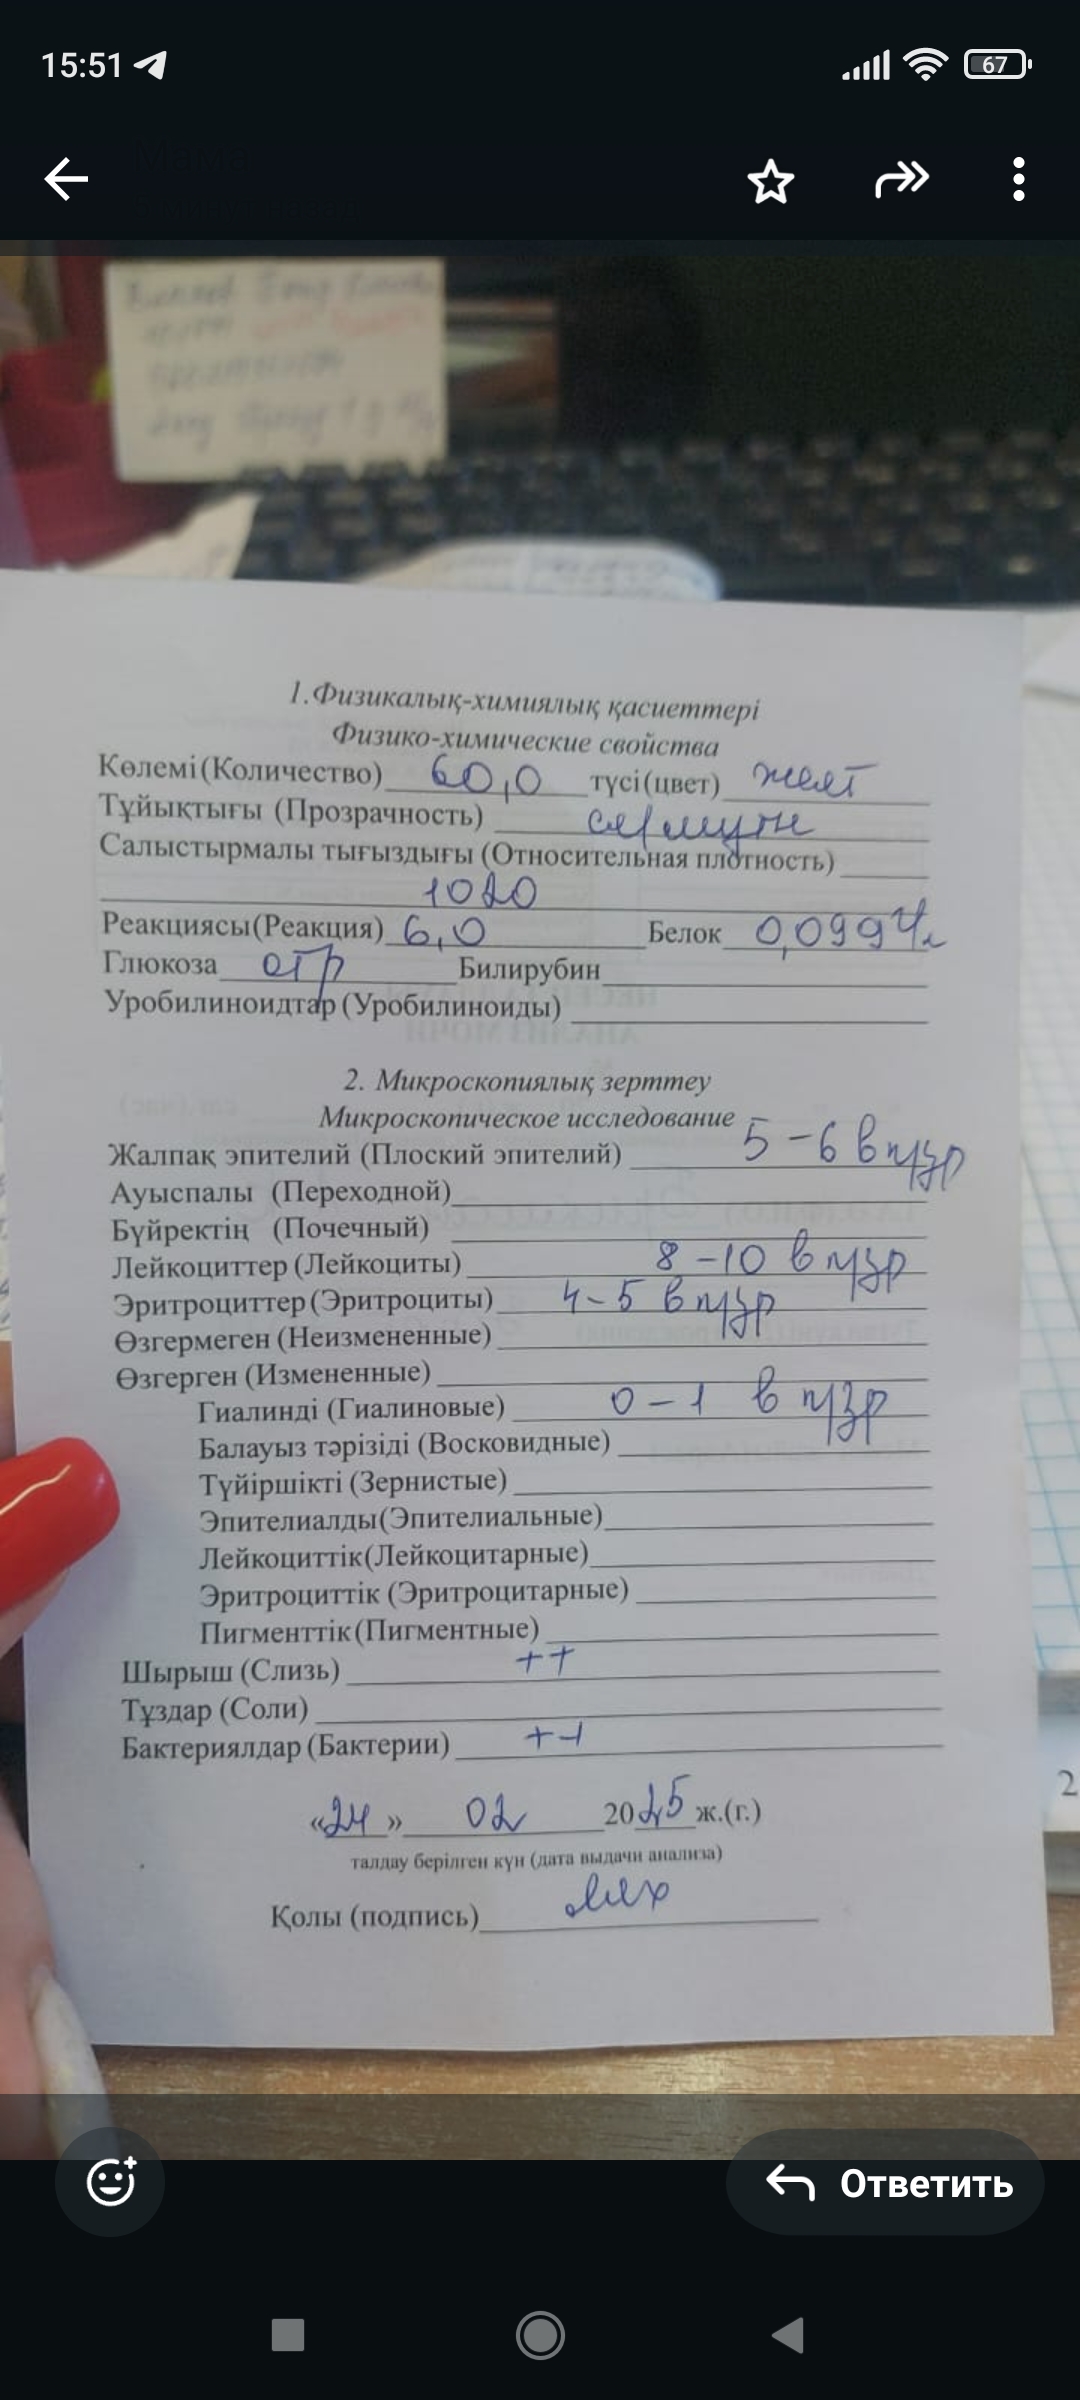 15:51
67
1.Физикалық-химиялық қасиеттері
Физико-химические свойства
Көлемі(Количество) 60,0 түсі(цвет) желт
Тұйықтығы (Прозрачность) сл/мутн
Салыстырмалы тығыздығы (Относительная плотность)
1020
Реакциясы(Реакция) 6,0 Белок 0,099 г/л
Глюкоза отр Билирубин
Уробилиноидтар (Уробилиноиды)
2. Микроскопиялық зерттеу
Микроскопическое исследование
Жалпақ эпителий (Плоский эпителий) 5-6 в п/зр
Ауыспалы (Переходной)
Бүйректің (Почечный)
Лейкоциттер (Лейкоциты) 8-10 в п/зр
Эритроциттер (Эритроциты) 4-5 в п/зр
Өзгермеген (Неизмененные)
Өзгерген (Измененные)
Гиалинді (Гиалиновые) 0-1 в п/зр
Балауыз тәрізіді (Восковидные)
Түйіршікті (Зернистые)
Эпителиалды(Эпителиальные)
Лейкоциттік(Лейкоцитарные)
Эритроциттік (Эритроцитарные)
Пигменттік(Пигментные)
Шырыш (Слизь) ++
Тұздар (Соли)
Бактериялдар (Бактерии) ++
«24» 02 2025 ж.(г.)
талдау берілген күн (дата выдачи анализа)
Қолы (подпись)
2
Ответить